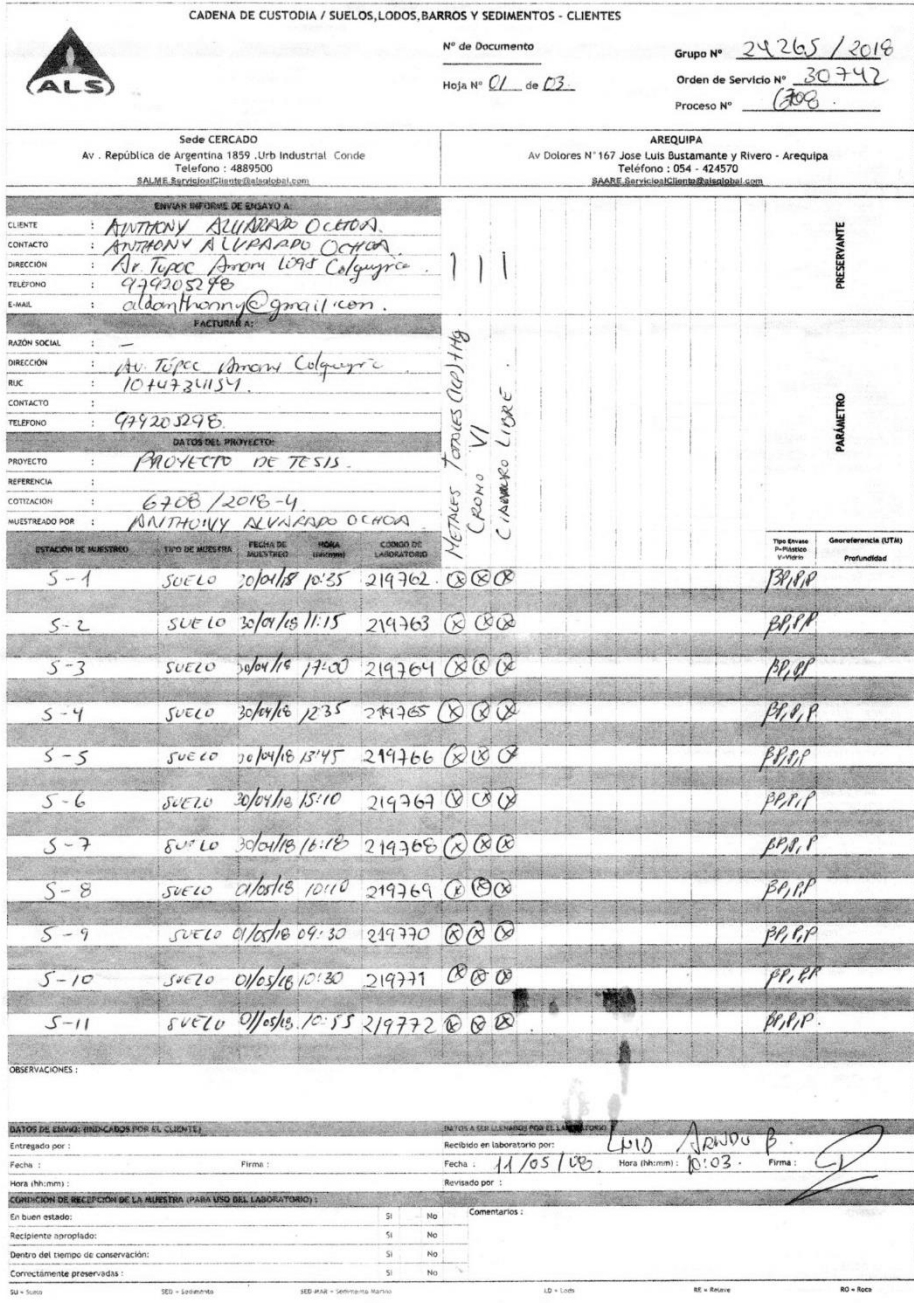 CADENA DE CUSTODIA / SUELOS,LODOS,BARROS Y SEDIMENTOS - CLIENTES
ALS
N° de Documento
Hoja N° 01 de 03
Grupo N° 24265 / 2018
Orden de Servicio N° 30742
Proceso N° 6708
Sede CERCADO
Av . República de Argentina 1859 .Urb Industrial Conde
Teléfono : 4889500
SALME.ServicioalCliente@alsglobal.com
AREQUIPA
Av Dolores N°167 Jose Luis Bustamante y Rivero - Arequipa
Teléfono : 054 - 424570
SAARE.ServicioalCliente@alsglobal.com
ENVIAR INFORME DE ENSAYO A:
CLIENTE : ANTHONY ALVARADO OCHOA.
CONTACTO : ANTHONY ALVARADO OCHOA
DIRECCIÓN : Av. Tupac Amaru
TELEFONO : 979205298
E-MAIL : aldanthonny@gmail.com.
PRESERVANTE
FACTURAR A:
RAZÓN SOCIAL : —
DIRECCIÓN : Av. Túpac Amaru
RUC : 10474341154.
CONTACTO :
TELEFONO : 979205298.
DATOS DEL PROYECTO:
PROYECTO : PROYECTO DE TESIS.
REFERENCIA :
COTIZACIÓN : 6708 /2018-4
MUESTREADO POR : ANTHONY ALVARADO OCHOA
METALES TOTALES (ICP)+Hg
CROMO VI
CIANURO LIBRE .
PARÁMETRO
ESTACIÓN DE MUESTREO TIPO DE MUESTRA FECHA DE MUESTREO HORA (hh:mm) CODIGO DE LABORATORIO Tipo Envase P=Plástico V=Vidrio Georeferencia (UTM) Profundidad
S - 1 SUELO 30/04/18 10:35 219762. X X X BP,P,P
S - 2 SUELO 30/04/18 11:15 219763 X X X BP,P,P
S - 3 SUELO 30/04/18 17:00 219764 X X X BP,P,P
S - 4 SUELO 30/04/18 12:35 219765 X X X BP,P,P
S - 5 SUELO 30/04/18 13:45 219766 X X X BP,P,P
S - 6 SUELO 30/04/18 15:10 219767 X X X BP,P,P
S - 7 SUELO 30/04/18 16:18 219768 X X X BP,P,P
S - 8 SUELO 01/05/18 10:10 219769 X X X BP,P,P
S - 9 SUELO 01/05/18 09:30 219770 X X X BP,P,P
S - 10 SUELO 01/05/18 10:30 219771 X X X BP,P,P
S - 11 SUELO 01/05/18 10:55 219772 X X X BP,P,P.
OBSERVACIONES :
DATOS DE ENVIO: (INDICADOS POR EL CLIENTE)
DATOS A SER LLENADOS POR EL LABORATORIO
Entregado por :
Recibido en laboratorio por:
Fecha : Firma :
Fecha : 11/05/ Hora (hh:mm) : 10:03. Firma :
Hora (hh:mm) :
Revisado por :
CONDICIÓN DE RECEPCIÓN DE LA MUESTRA (PARA USO DEL LABORATORIO) :
En buen estado: Si No
Comentarios :
Recipiente apropiado: Si No
Dentro del tiempo de conservación: Si No
Correctamente preservadas : Si No
SU = Suelo SED = Sedimento SED MAR = Sedimento Marino LD = Lodo RE = Relave RO = Roca